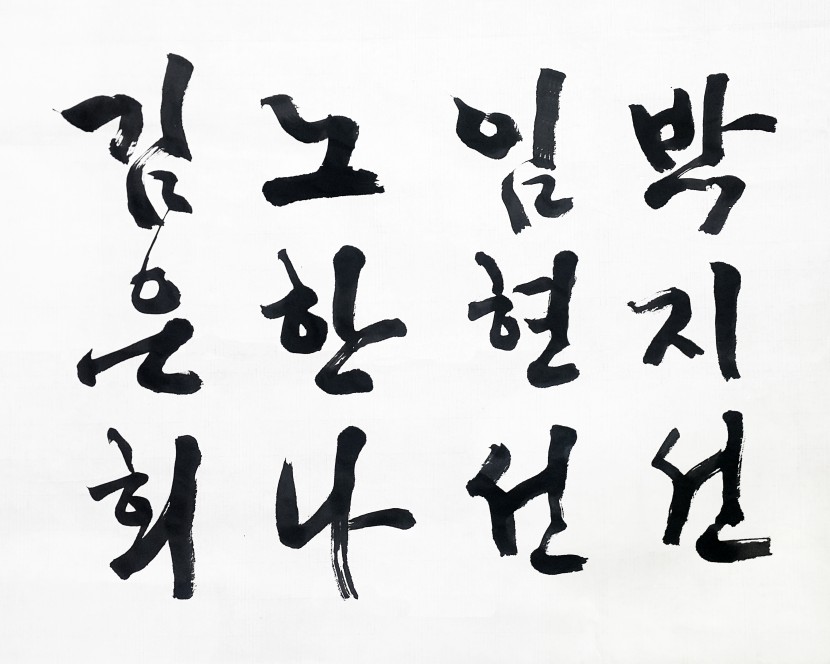 김은희
노한나
임현선
박지선